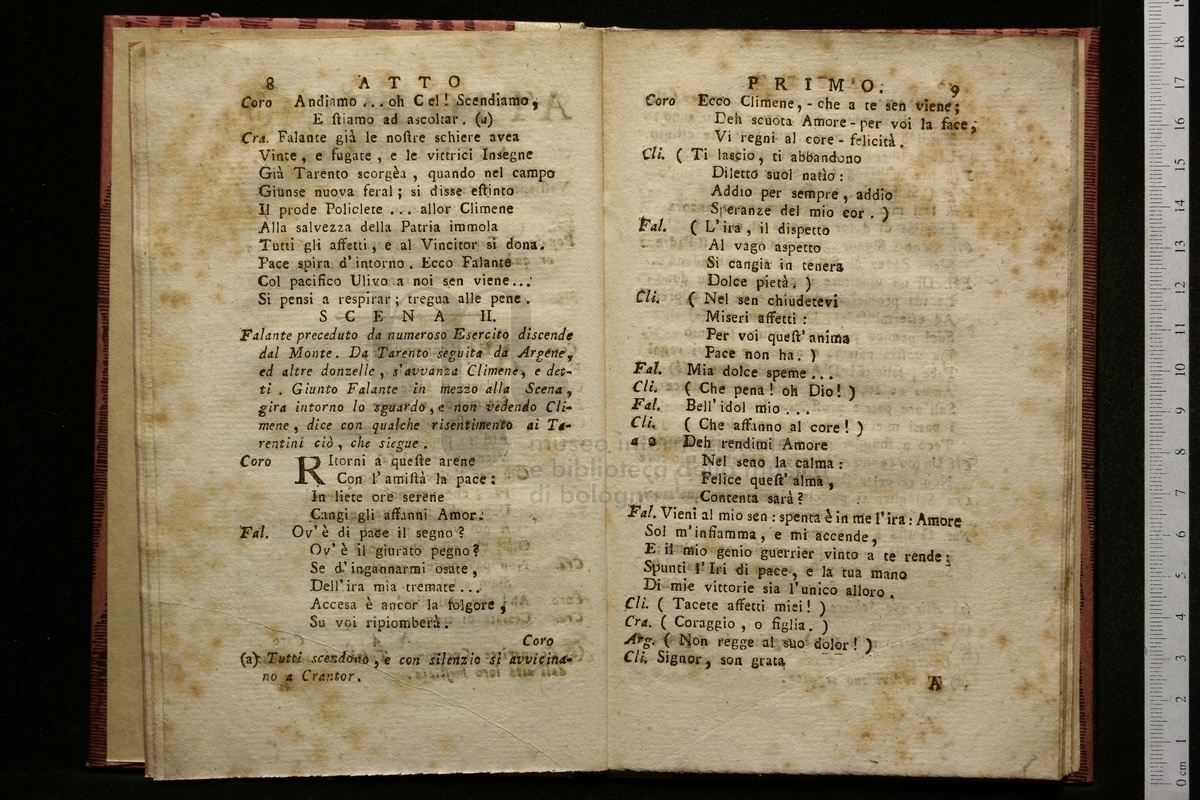 8 ATTO
Coro Andiamo ... oh Ciel! Scendiamo,
E ſtiamo ad ascoltar. (a)
Cra. Falante già le noſtre schiere avea
Vinte, e fugate, e le vittrici Insegne
Già Tarento scorgèa, quando nel campo
Giunse nuova feral; si disse eſtinto
Il prode Policlete ... allor Climene
Alla salvezza della Patria immola
Tutti gli affetti, e al Vincitor si dona.
Pace spira d'intorno. Ecco Falante
Col pacifico Ulivo a noi sen viene...
Si pensi a respirar; tregua alle pene.
SCENA II.
Falante preceduto da numeroso Esercito discende
dal Monte. Da Tarento seguita da Argene,
ed altre donzelle, s'avvanza Climene, e det-
ti. Giunto Falante in mezzo alla Scena,
gira intorno lo sguardo, e non vedendo Cli-
mene, dice con qualche risentimento ai Ta-
rentini ciò, che siegue.
Coro RItorni a queſte arene
Con l'amiſtà la pace:
In liete ore serene
Cangi gli affanni Amor.
Fal. Ov'è di pace il segno?
Ov'è il giurato pegno?
Se d'ingannarmi osate,
Dell'ira mia tremate...
Accesa è ancor la folgore,
Su voi ripiomberà.
Coro
(a) Tutti scendono, e con silenzio si avvicina-
no a Crantor.
PRIMO. 9
Coro Ecco Climene, - che a te sen viene;
Deh scuota Amore - per voi la face,
Vi regni al core - felicità.
Cli. (Ti lascio, ti abbandono
Diletto suol natìo:
Addio per sempre, addio
Speranze del mio cor.)
Fal. (L'ira, il dispetto
Al vago aspetto
Si cangia in tenera
Dolce pietà.)
Cli. (Nel sen chiudetevi
Miseri affetti:
Per voi queſt'anima
Pace non ha.)
Fal. Mia dolce speme...
Cli. (Che pena! oh Dio!)
Fal. Bell'idol mio...
Cli. (Che affanno al core!)
a 2 Deh rendimi Amore
Nel seno la calma:
Felice queſt'alma,
Contenta sarà?
Fal. Vieni al mio sen: spenta è in me l'ira: Amore
Sol m'infiamma, e mi accende,
E il mio genio guerrier vinto a te rende:
Spunti l'Iri di pace, e la tua mano
Di mie vittorie sia l'unico alloro.
Cli. (Tacete affetti miei!)
Cra. (Coraggio, o figlia.)
Arg. (Non regge al suo dolor!)
Cli. Signor, son grata
A